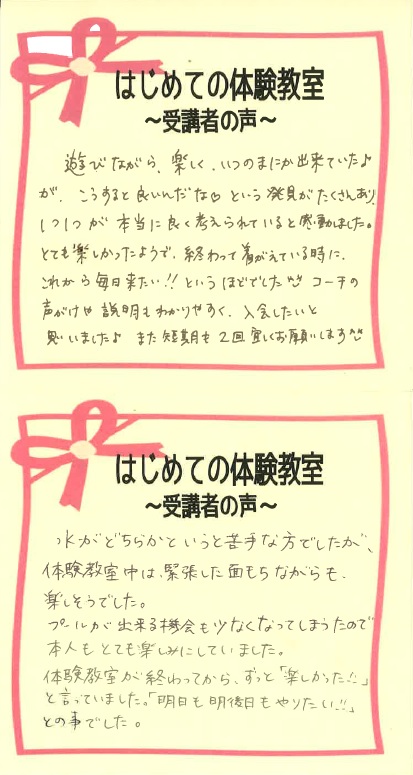 はじめての体験教室
～受講者の声～
遊びながら、楽しく、いつのまにか出来ていた♪
が、こうすると良いんだな♡という発見がたくさんあり、
1つ1つが本当に良く考えられていると感動しました。
とても楽しかったようで、終わって着がえている時に、
これから毎日来たい!!というほどでした^^ コーチの
声がけや説明もわかりやすく、入会したいと
思いました♪ また短期も2回宜しくお願いします^^
はじめての体験教室
～受講者の声～
水がどちらかというと苦手な方でしたが、
体験教室中は、緊張した面もちながらも、
楽しそうでした。
プールが出来る機会も少なくなってしまうので
本人もとても楽しみにしていました。
体験教室が終わってから、ずっと「楽しかった!!」
と言っていました。「明日も明後日もやりたい!!」
との事でした。